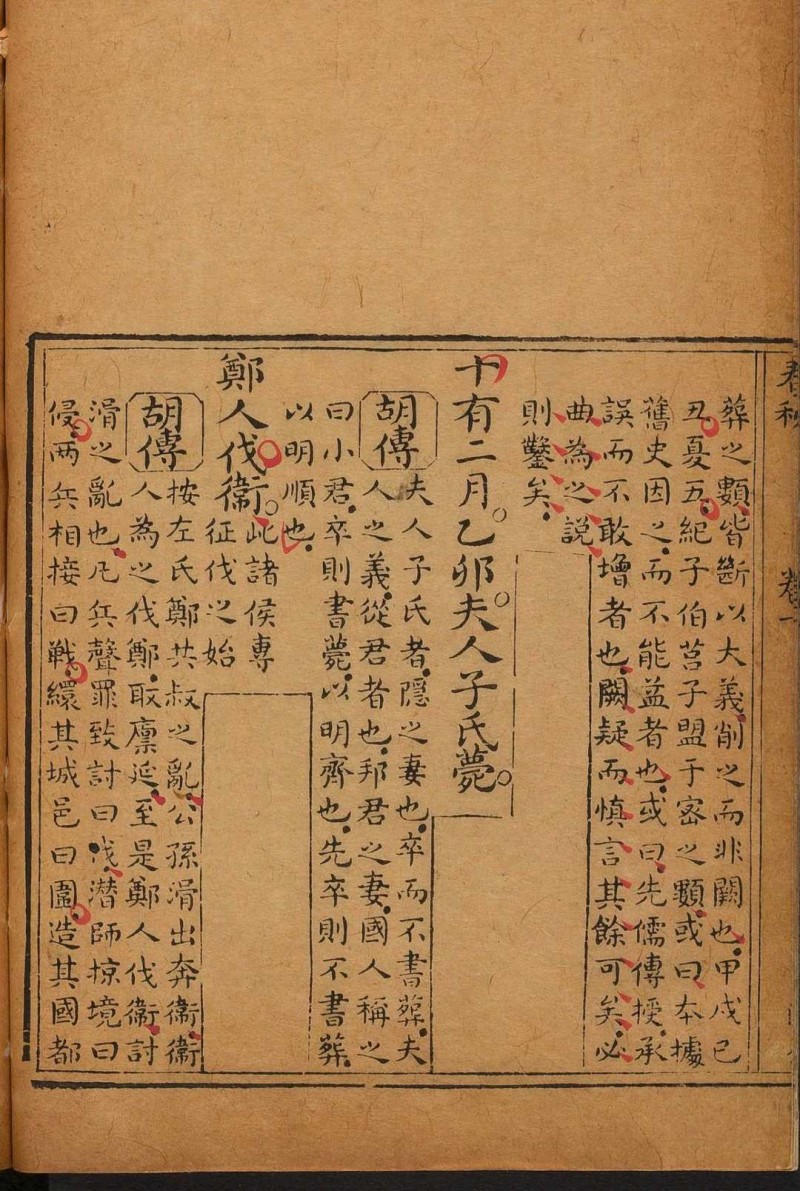 春秋 卷一
葬之類皆斷以大義削之而非闕也甲戌已
丑夏五紀子伯莒子盟于密之類或曰本據
舊史因之而不能益者也或曰先儒傳授承
誤而不敢增者也闕疑而慎言其餘可矣必
曲為之說
則鑿矣
十有二月乙卯夫人子氏薨
胡傳
夫人子氏者隱之妻也卒而不書葬夫
人之義從君者也邦君之妻國人稱之
曰小君卒則書薨以明齊也先卒則不書葬
以明順也
鄭人伐衞
此諸侯專
征伐之始
胡傳
按左氏鄭共叔之亂公孫滑出奔衞衞
人為之伐鄭取廩延至是鄭人伐衞討
滑之亂也凡兵聲罪致討曰伐潛師掠境曰
侵兩兵相接曰戰繯其城邑曰圍造其國都